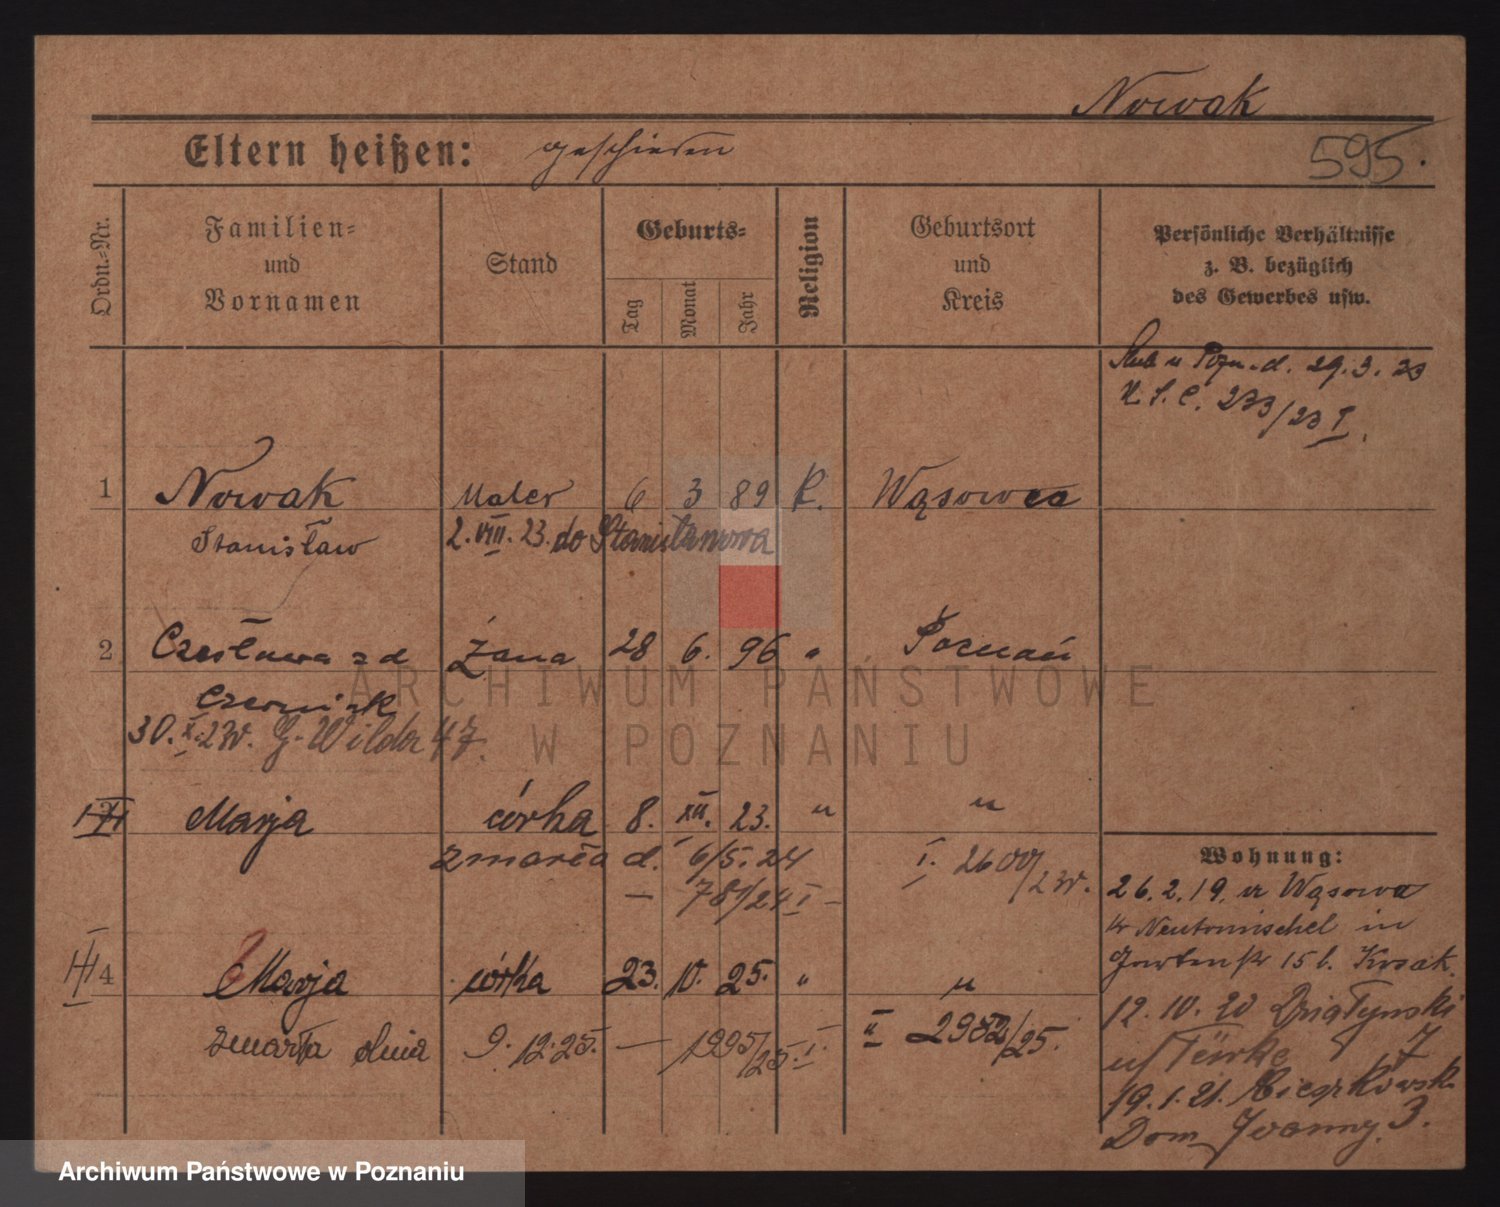 Nowak
Eltern heißen: geschieden
595.
Ordn.-Nr.
Familien-
und
Vornamen
Stand
Geburts-
Tag
Monat
Jahr
Religion
Geburtsort
und
Kreis
Persönliche Verhältnisse
z. B. bezüglich
des Gewerbes usw.
Ślub u Pozn. d. 29.3.23
U.S.C. 233/23 I.
1 Nowak Maler 6 3 89 K. Wąsowo
Stanisław 2.VIII.23. do Stanisławowa
2 Czesława zd Żona 28 6. 96 " Poznań
Czerniak
30.X.23r. G. Wilda 47.
3 Marja córka 8. XII. 23. " "
zmarła d. 6/5. 24 I. 2600/23r.
— 781/24 I —
4 Marja córka 23. 10. 25. " "
zmarła dnia 9. 12. 25. — 1995/25. I. II 2982/25.
Wohnung:
26.2.19. v Wąsowa
Kr Neutomischel in
Gartenstr 15 b. Kosak.
12.10.20 Działyński
7
19.1.21. Cieszkowsk.
Dom 3.
ARCHIWUM PAŃSTWOWE
W POZNANIU
Archiwum Państwowe w Poznaniu